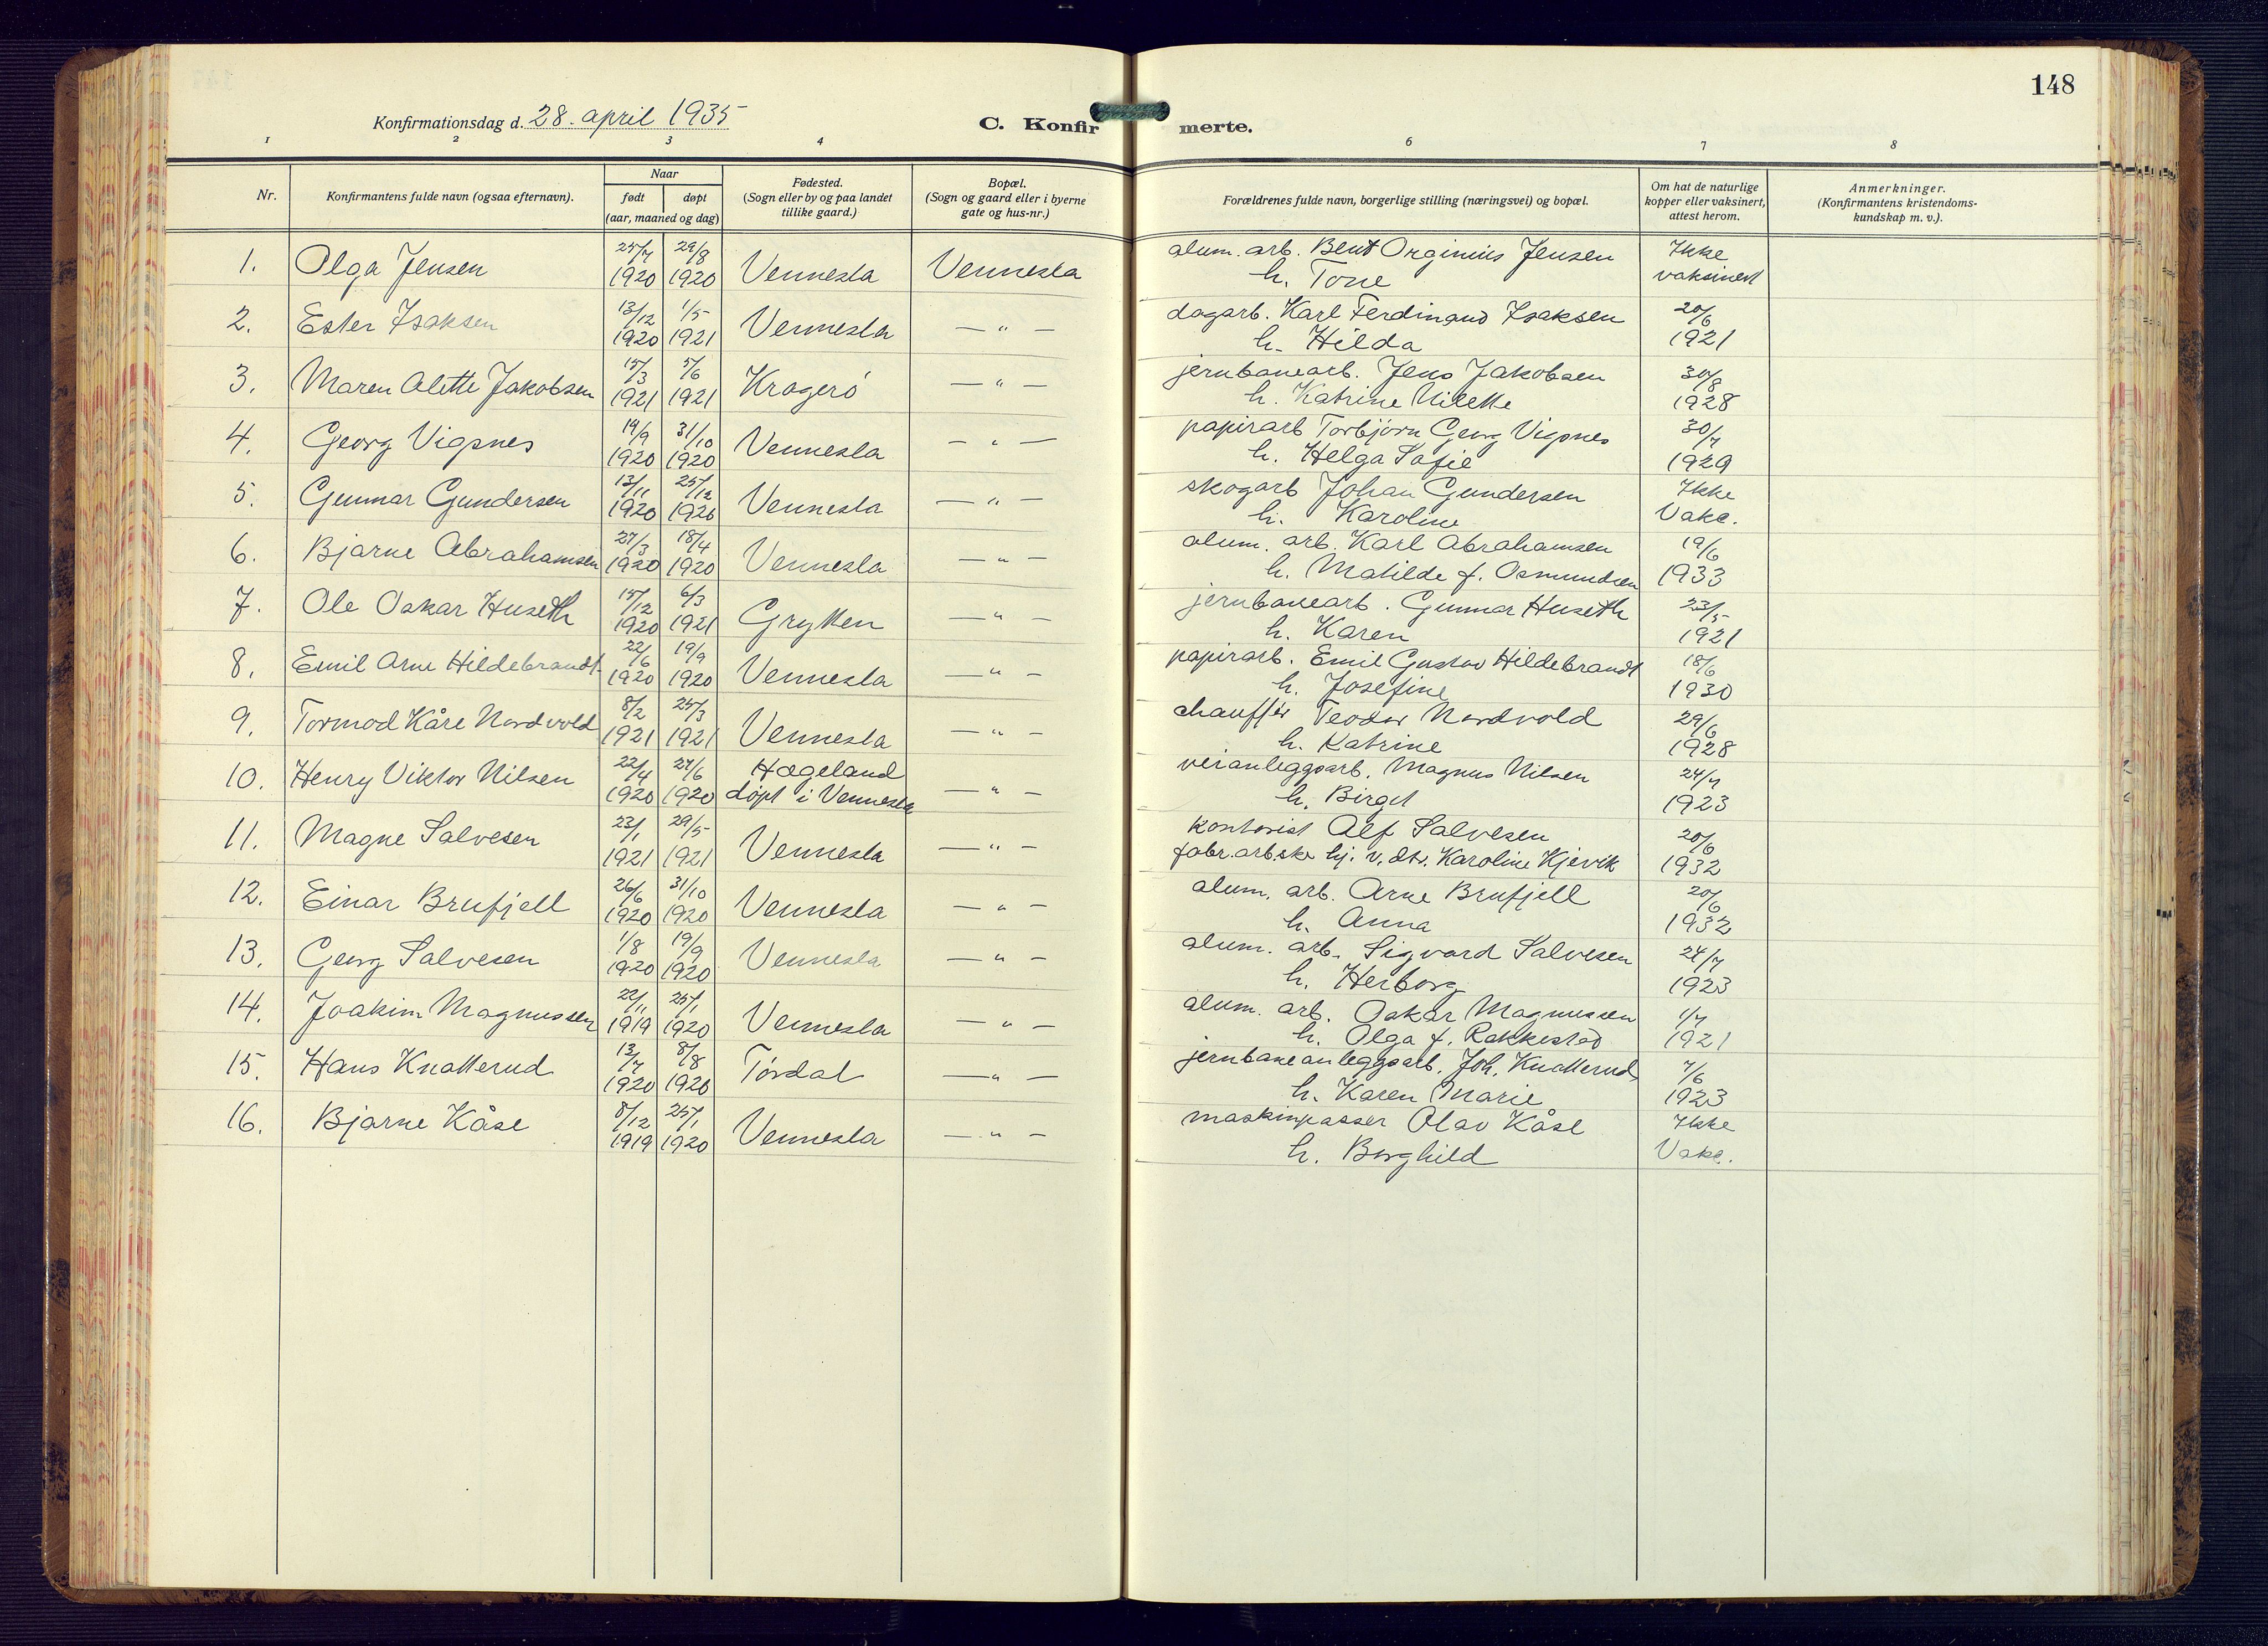 148
Konfirmationsdag d. 28. april 1935
C. Konfirmerte.
1 2 3 4 6 7 8
Nr. | Konfirmantens fulde navn (ogsaa efternavn). | Naar født | døpt (aar, maaned og dag) | Fødested. (Sogn eller by og paa landet tillike gaard.) | Bopæl. (Sogn og gaard eller i byerne gate og hus-nr.) | Forældrenes fulde navn, borgerlige stilling (næringsvei) og bopæl. | Om hat de naturlige kopper eller vaksinert, attest herom. | Anmerkninger. (Konfirmantens kristendomskundskap m. v.).
1. Olga Jensen 25/7 1920 29/8 1920 Vennesla Vennesla alum. arb. Bent Orginius Jensen h. Tone Ikke vaksinert
2. Ester Isaksen 13/12 1920 1/5 1921 Vennesla — " — dagarb. Karl Ferdinand Isaksen h. Hilda 20/6 1921
3. Maren Alette Jakobsen 15/3 1921 5/6 1921 Kragerö — " — jernbanearb. Jens Jakobsen h. Katrine Nilette 30/8 1928
4. Georg Vigsnes 19/9 1920 31/10 1920 Vennesla — " — papirarb Torbjörn Georg Vigsnes h. Helga Sofie 30/7 1929
5. Gunnar Gundersen 13/11 1920 25/12 1920 Vennesla — " — skogarb Johan Gundersen h. Karoline Ikke Vaks.
6. Bjarne Abrahamsen 27/3 1920 18/4 1920 Vennesla — " — alum. arb. Karl Abrahamsen h. Matilde f. Osmundsen 19/6 1933
7. Ole Oskar Huseth 15/12 1920 6/3 1921 Grytten — " — jernbanearb. Gunnar Huseth h. Karen 23/5 1921
8. Emil Arne Hildebrandt 22/6 1920 19/9 1920 Vennesla — " — papirarb. Emil Gustav Hildebrandt h. Josefine 18/6 1930
9. Tormod Kåre Nordvold 8/2 1921 25/3 1921 Vennesla — " — chaufför Teodor Nordvold h. Katrine 29/6 1928
10. Henry Viktor Nilsen 22/4 1920 27/6 1920 Hægeland döpt i Vennesla — " — veianleggsarb. Magnus Nilsen h. Birgit 24/7 1923
11. Magne Salvesen 23/1 1921 29/5 1921 Vennesla — " — kontorist Alf Salvesen fabr.arb.ske hj. v. dtr. Karoline Kjevik 20/6 1932
12. Einar Brufjell 26/6 1920 31/10 1920 Vennesla — " — alum. arb. Arne Brufjell h. Anna 20/6 1932
13. Georg Salvesen 1/8 1920 19/9 1920 Vennesla — " — alum. arb. Sigvard Salvesen h. Herborg 24/7 1923
14. Joakim Magnussen 22/11 1919 25/1 1920 Vennesla — " — alum. arb. Oskar Magnussen h. Olga f. Rakkestad 1/7 1921
15. Hans Knatterud 13/7 1920 8/8 1920 Tördal — " — jernbaneanleggsarb. Joh. Knatterud h. Karen Marie 7/6 1923
16. Bjarne Kåse 8/12 1919 25/1 1920 Vennesla — " — maskinpasser Olav Kåse h. Borghild Ikke Vaks.